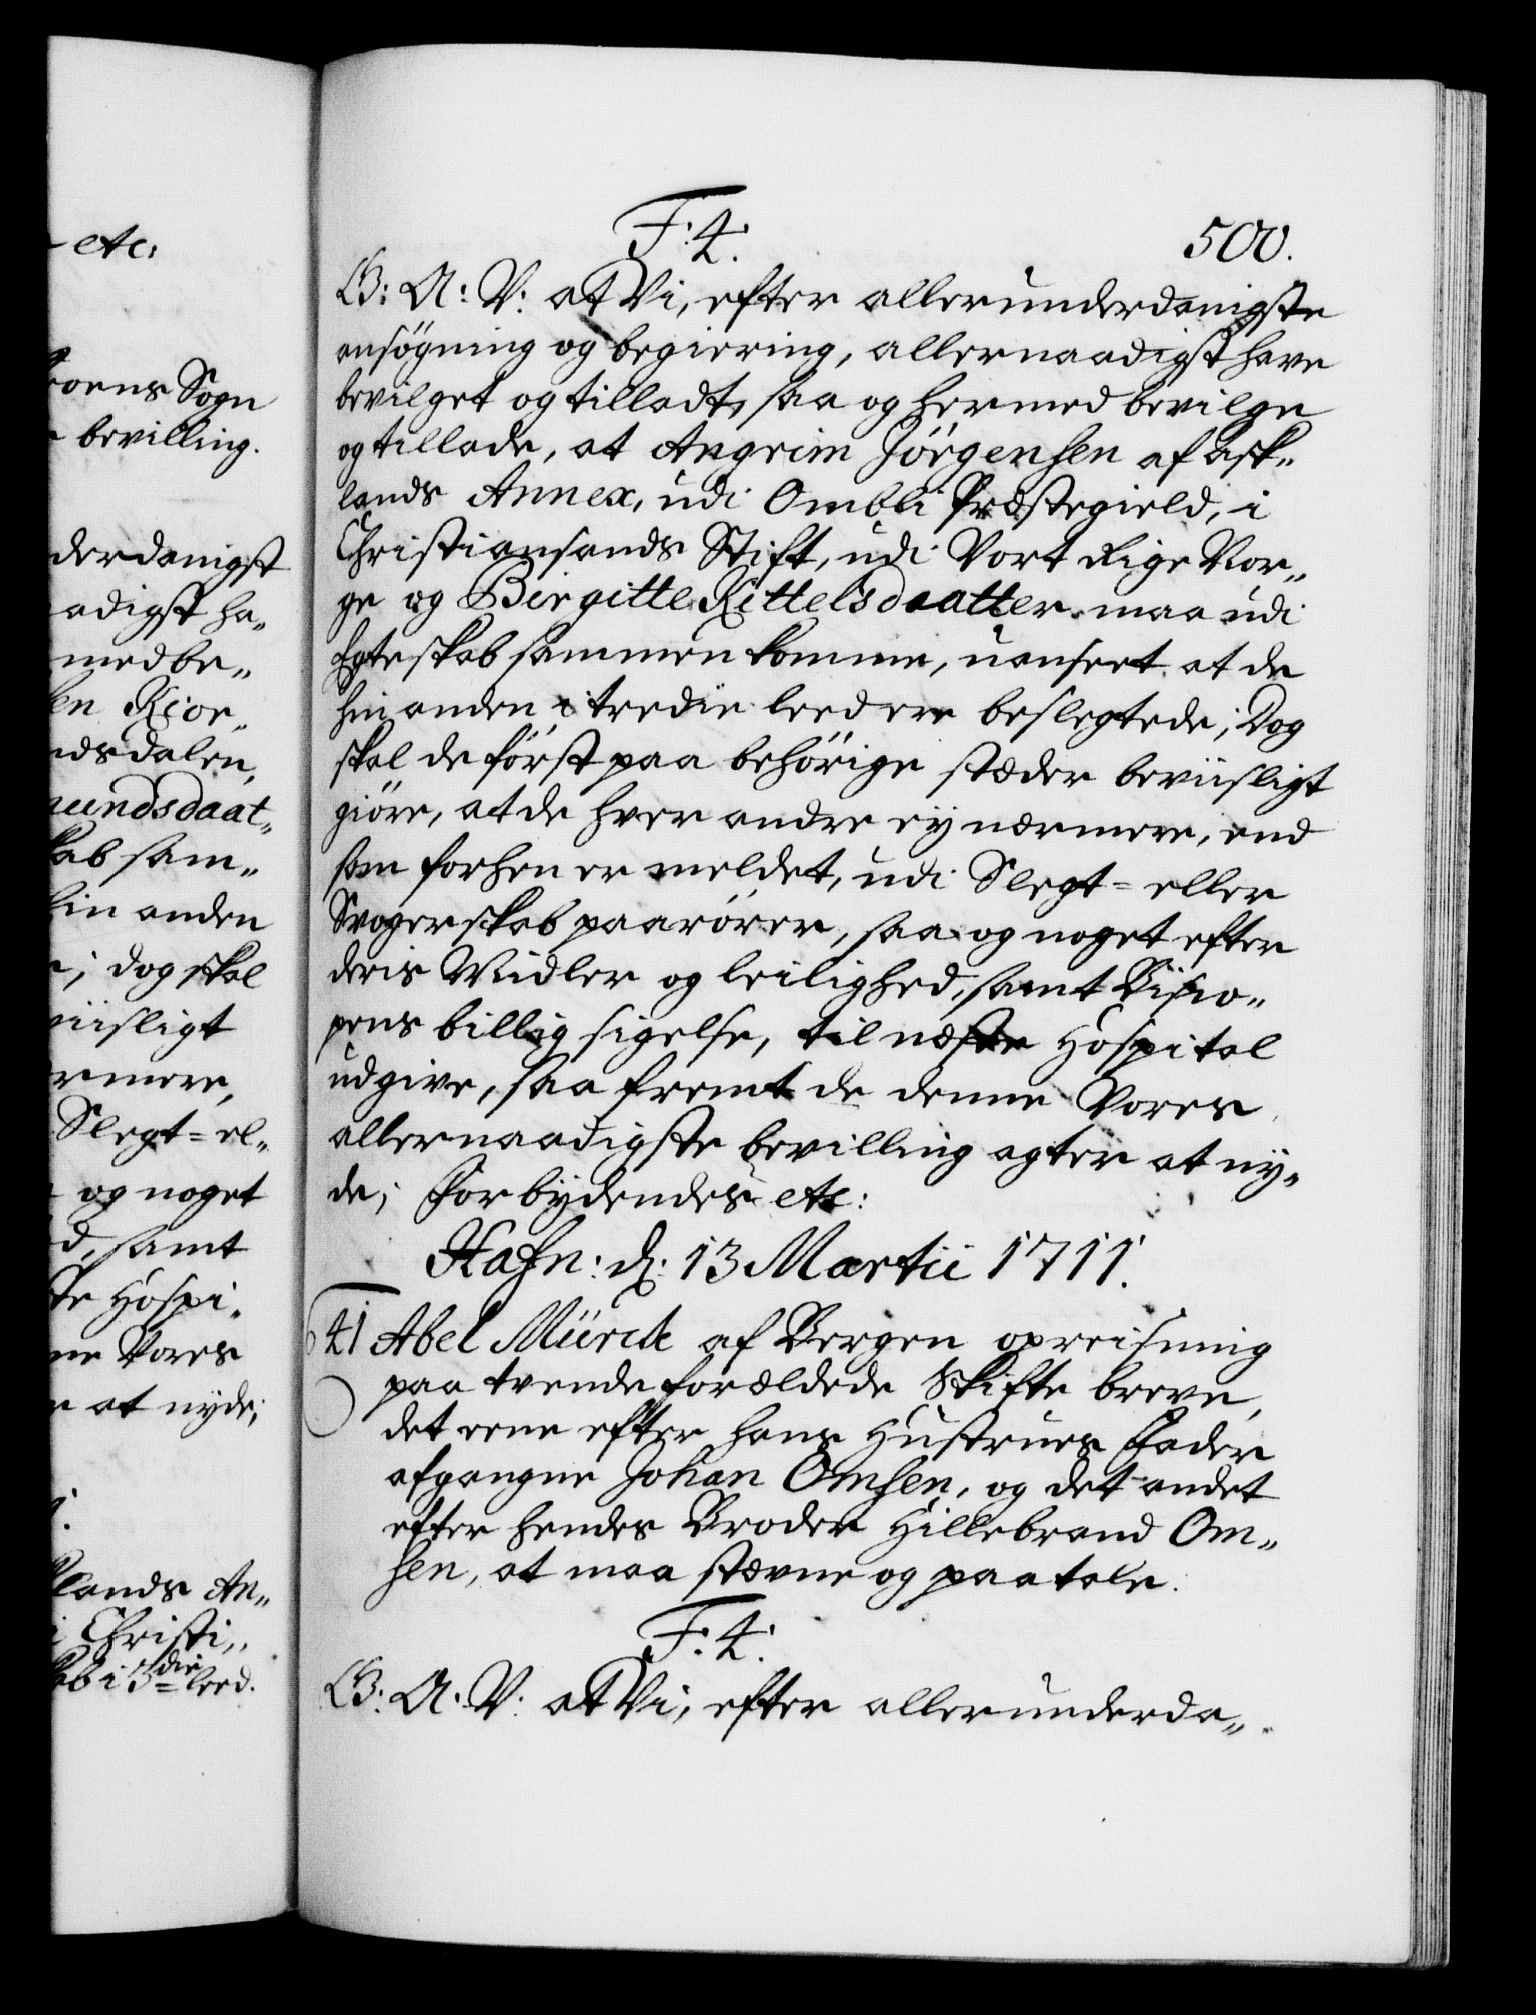 - etc:
oens Sogn
bevilling.
derdanigst
adigst ha„
med be„
en Kior„
ndsdalen,
mundsdaat„
kab sam„
hin anden
; dog skal
viisligt
ermere,
Slegt= el„
og noget
d, samt
te Hospi„
ne Vores
at nyde;
lands An„
Christi„
kab i 3die leed.
F: 4. 500.
G: A: V: at Vi, efter allerunderdanigste
ansøgning og begiering, allernaadigst have
bevilget og tilladt, saa og hermed bevilge
og tillade, at Angrim Jörgensen af Ask„
lands Annex, udi Ombli Præstegield, i
Christiansands Stift, udi Vort Rige Nor„
ge og Birgitte Kittelsdaatter maa udi
Egteskab sammen komme, uanseet at de
hin anden i tredie leed ere beslegtede; Dog
skal de först paa behörige stæder beviisligt
giöre, at de hver andre ey nærmere, end
som forhen er meldet, udi Slegt= eller
Svogerskab paarörer, saa og noget efter
deris Midler og leilighed, samt Bisco„
pens billig sigelse, til næste Hospital
udgive, saa fremt de denne Vores
allernaadigste bevilling agter at ny„
de; Forbydendes etc:
Hafn: d: 13 Martii 1711.
41 Abel Mürck af Bergen opreisning
paa tvende forældede Skifte breve,
det eene efter hans Hustrues Fader
afgangne Johan Omsen, og det andet
efter hendes Broder Hillebrand Om„
sen, at maa stævne og paatale.
F: 4.
G: A: V: at Vi, efter allerunderda„